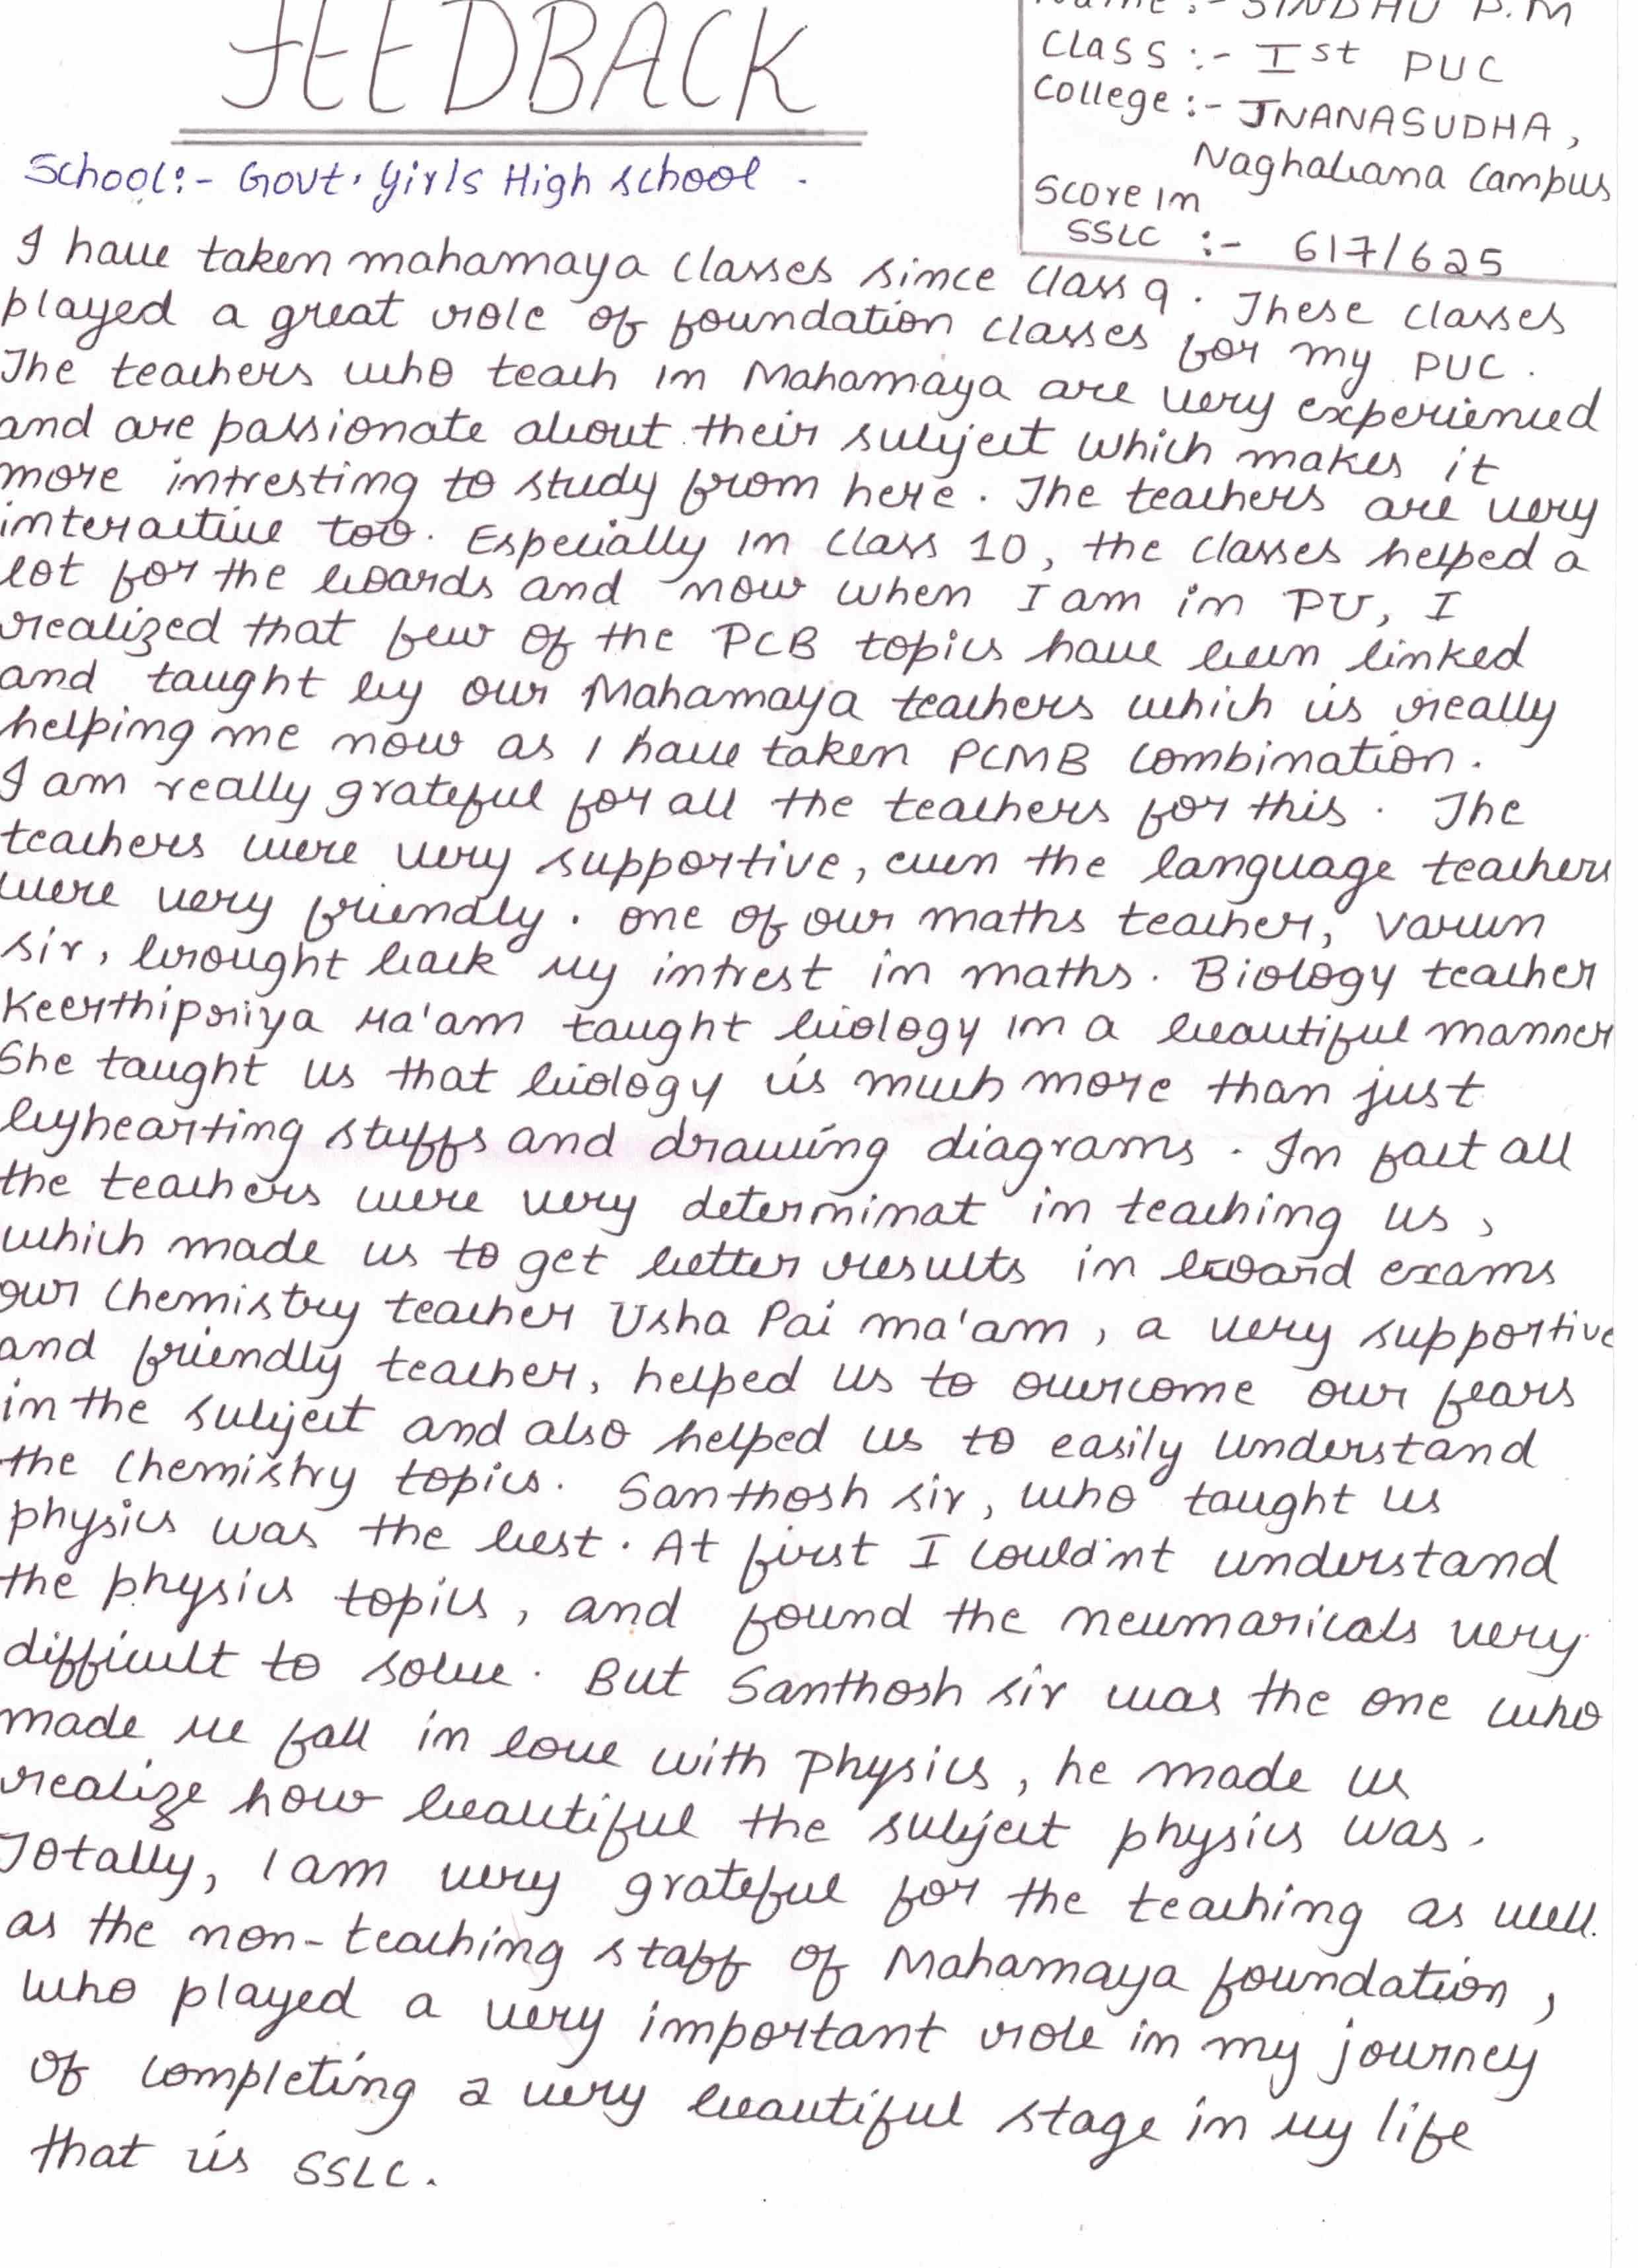 FEEDBACK
Name :- SINDHU P.M
Class :- Ist PUC
College :- JNANASUDHA,
Naghabana Campus
Score in
SSLC :- 617/625
School:- Govt. Girls High School.
I have taken mahamaya classes since class 9. These classes
played a great role of foundation classes for my PUC.
The teachers who teach in Mahamaya are very experienced
and are passionate about their subject which makes it
more intresting to study from here. The teachers are very
interactive too. Especially in class 10, the classes helped a
lot for the boards and now when I am in PU, I
realized that few of the PCB topics have been linked
and taught by our Mahamaya teachers which is really
helping me now as I have taken PCMB combination.
I am really grateful for all the teachers for this. The
teachers were very supportive, even the language teachers
were very friendly. One of our maths teacher, Varun
sir, brought back my intrest in maths. Biology teacher
Keerthipriya Ma'am taught biology in a beautiful manner
She taught us that biology is much more than just
byhearting stuffs and drawing diagrams. In fact all
the teachers were very determinat in teaching us,
which made us to get better results in board exams
our Chemistry teacher Usha Pai ma'am, a very supportive
and friendly teacher, helped us to overcome our fears
in the subject and also helped us to easily understand
the Chemistry topics. Santhosh sir, who taught us
physics was the best. At first I could'nt understand
the physics topics, and found the neumaricals very
difficult to solve. But Santhosh sir was the one who
made me fall in love with Physics, he made us
realize how beautiful the subject physics was.
Totally, I am very grateful for the teaching as well.
as the non-teaching staff of Mahamaya foundation,
who played a very important role in my journey
of completing a very beautiful stage in my life
that is SSLC.